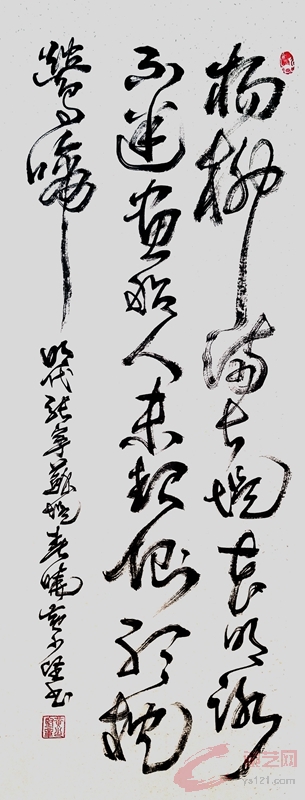 杨柳满长堤花明路
不迷画船人未起侧听枕
莺啼
明代张宁苏堤春晓 书
ys121.com